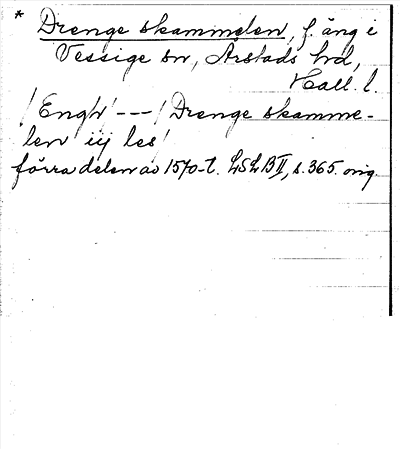 * Drenge skammelen, f. äng i
Vessige sn, Årstads hd,
Hall. l.
/Engh/ --- / Drenge skamme-
len iij les/
förra delen av 1570-t. LSLB II, s. 365. orig.